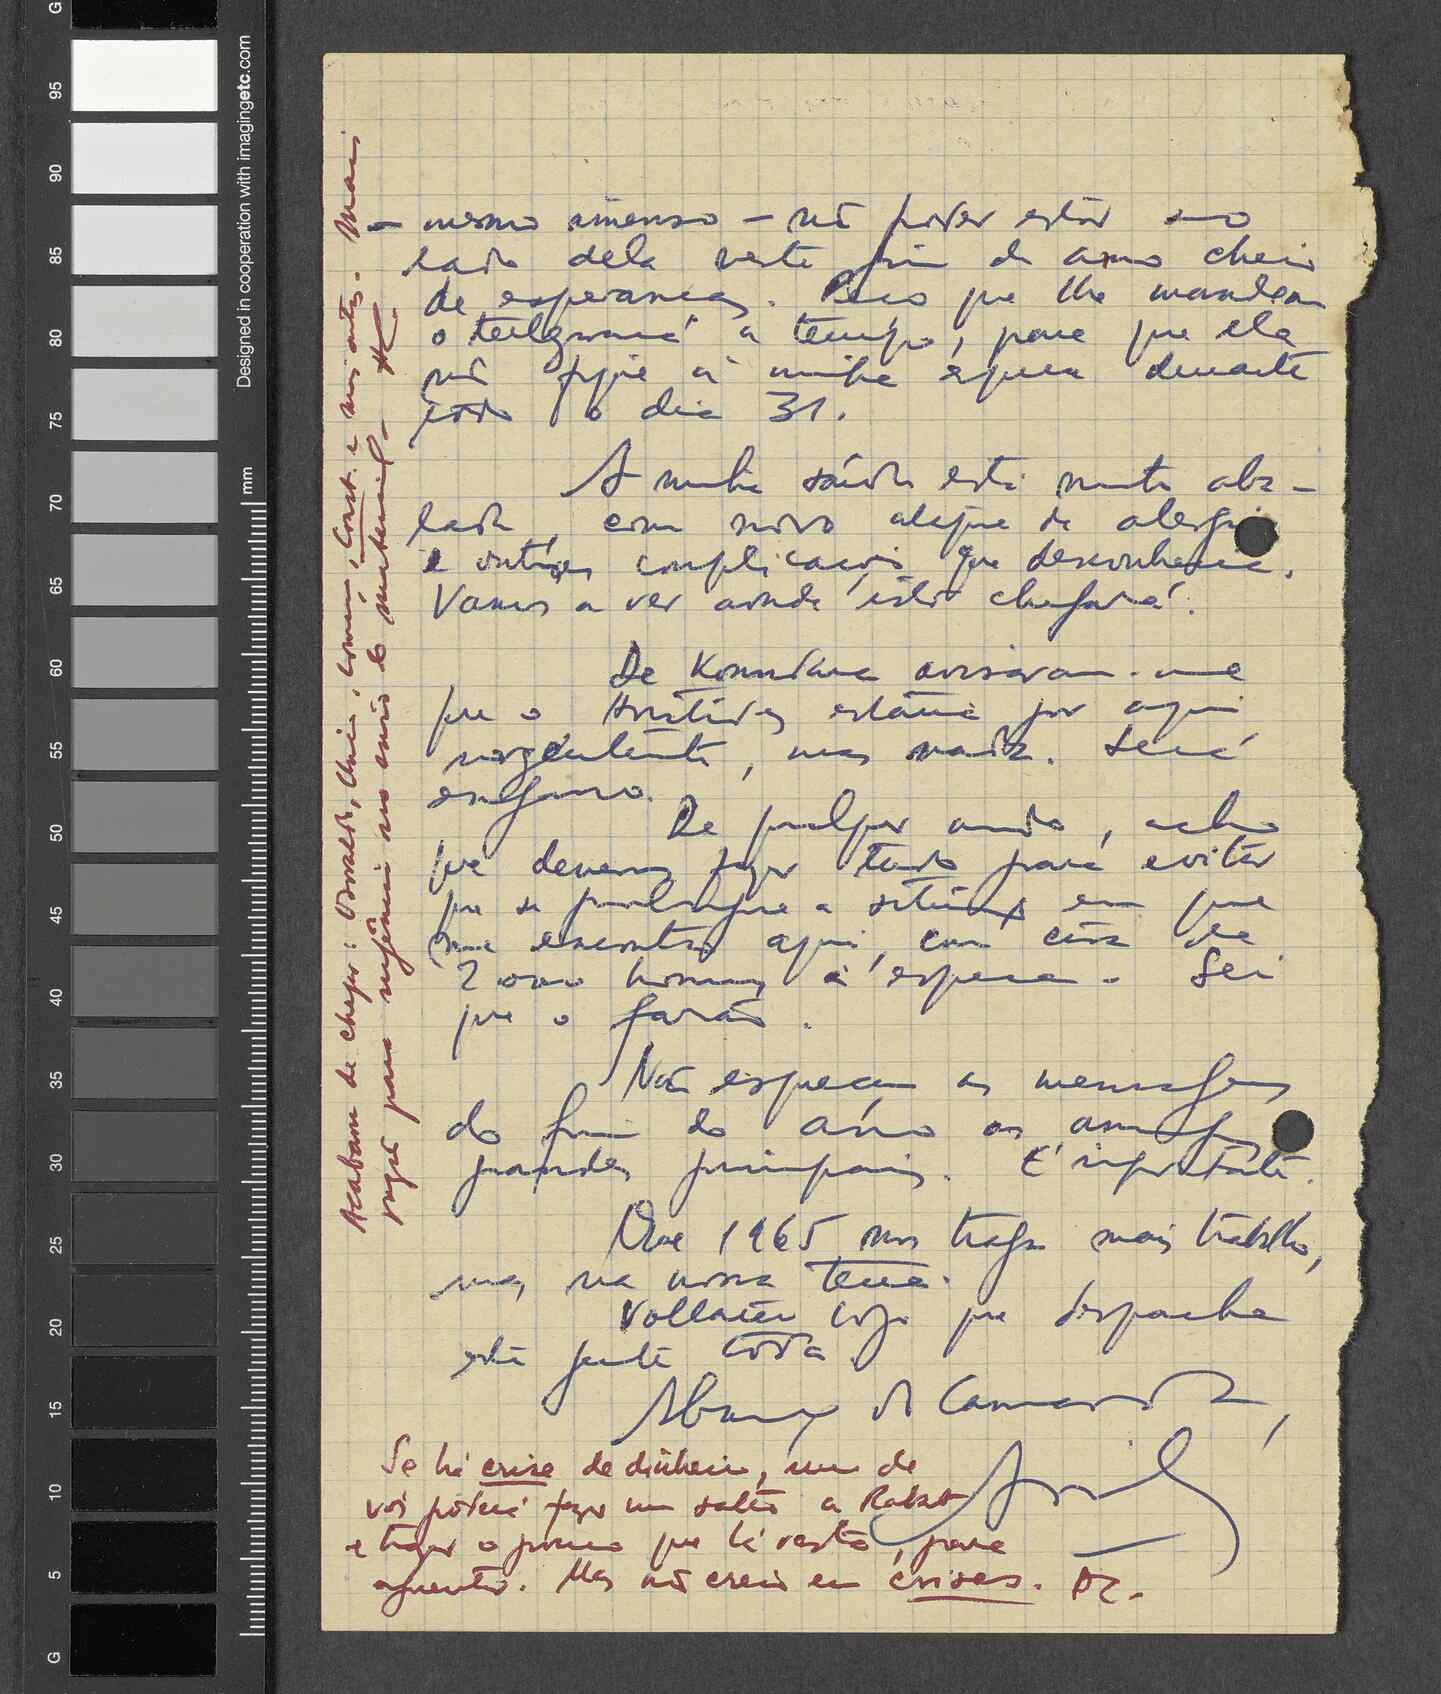 - mesmo imenso - não poder estar ao
lado dela neste fim de ano cheio
de esperanças. Peço que lhe mandem
o telegrama a tempo, para que ela
não fique à minha espera durante
todo o dia 31.
A minha saúde está muito aba-
lada, com novo ataque de alergia
e outras complicações que desconhecia.
Vamos a ver aonde isto chegará.
De Konakry avisaram-me
que o Aristides estaria por aqui
urgentemente, mas nada. Será
engano.
De qualquer modo, acho
que devemos fazer tudo para evitar
que se prolongue a situação em que
me encontro aqui, com cerca de
2 000 homens à espera. Sei
que o farão.
Não esqueçam as mensagens
do fim do ano aos amigos
grandes principais. É importante.
Que 1965 nos traga mais trabalho,
mas na nossa terra.
Voltarei logo que despache
esta gente toda.
Abraço do Camarada,
Amílcar
Se há crise de dinheiro, um de
vós poderá fazer um salto a Rabat
e trazer o pouco que lá resta, para
aguentar. Mas não creio em crises. AC.
Acabam de chegar: Osvaldo, Chico, , Const. e uns outros. Mais
razão para urgência no envio do material. AC
G
95
90
85
80
75
70
65
60
55
50
45
40
35
30
25
20
15
10
5
G
mm
Designed in cooperation with imagingetc.com